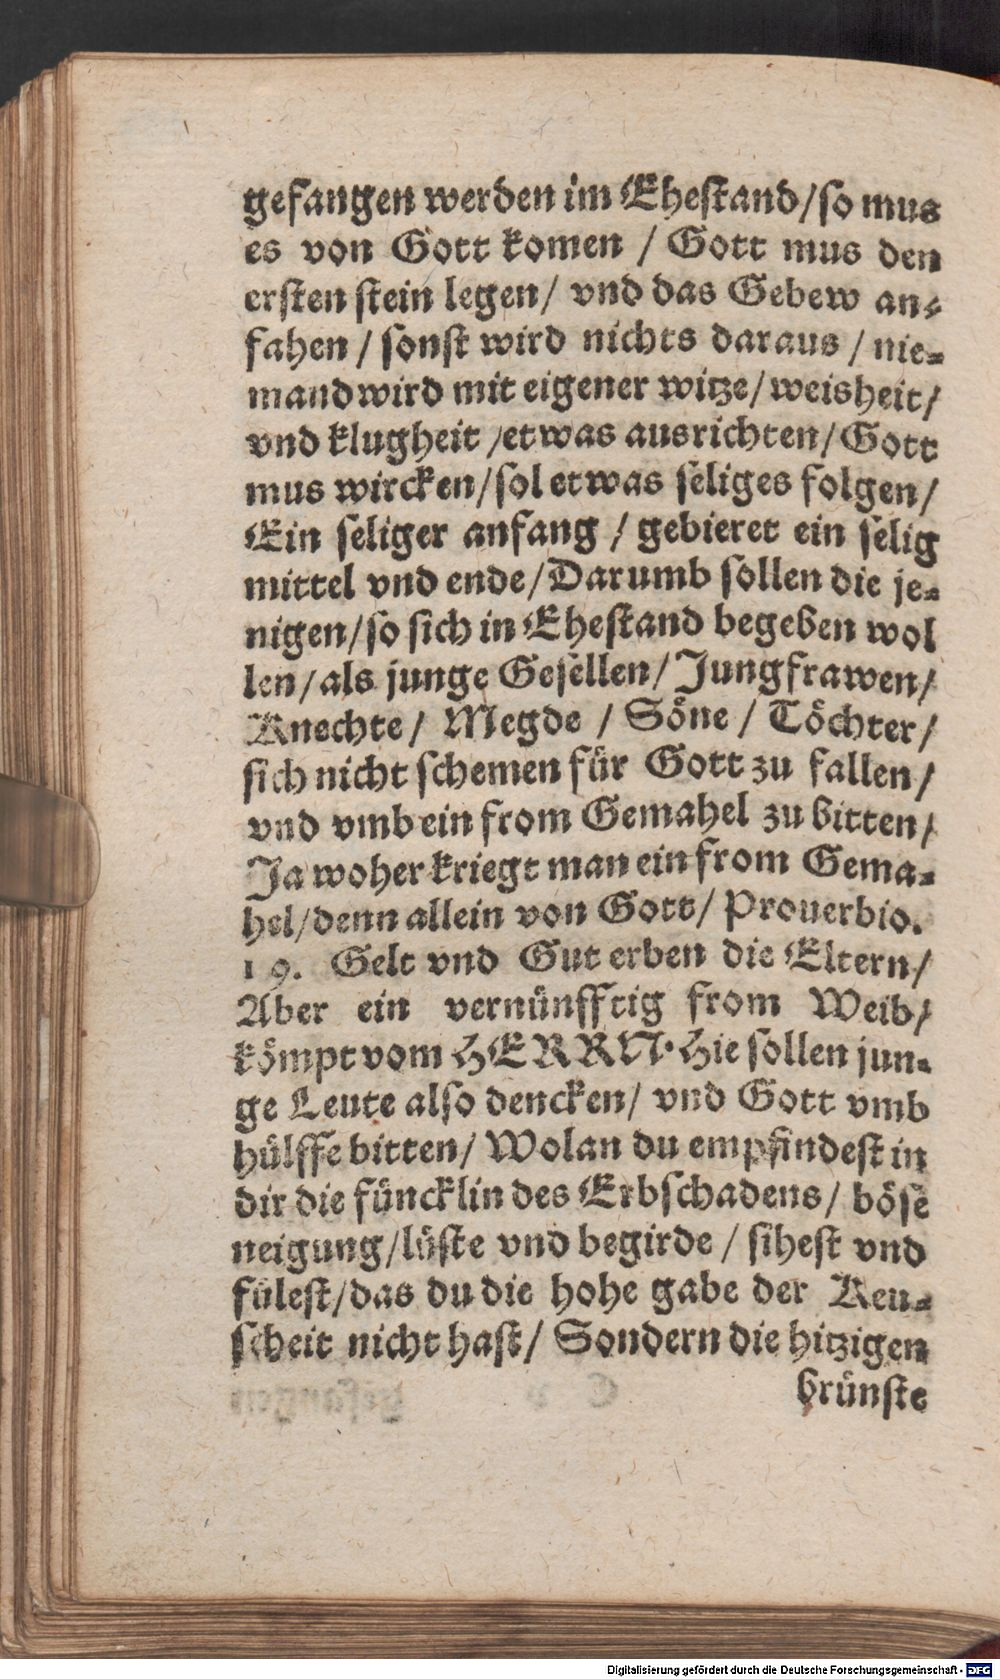 gefangen werden im Ehestand/so mus
es von Gott komen / Gott mus den
ersten stein legen/ vnd das Gebew an-
fahen / sonst wird nichts daraus / nie-
mand wird mit eigener witze/ weisheit/
vnd klugheit /etwas ausrichten/ Gott
mus wircken/sol etwas seliges folgen/
Ein seliger anfang / gebieret ein selig
mittel vnd ende/Darumb sollen die je-
nigen/so sich in Ehestand begeben wol
len/als junge Gesellen/ Jungfrawen/
Knechte/ Megde / Söne / Töchter/
sich nicht schemen für Gott zu fallen/
vnd vmb ein from Gemahel zu bitten/
Ja woher kriegt man ein from Gema-
hel/denn allein von Gott/ Prouerbio.
19. Gelt vnd Gut erben die Eltern/
Aber ein vernünfftig from Weib/
kömpt vom HERRN. Hie sollen jun-
ge Leute also dencken/ vnd Gott vmb
hülffe bitten/ Wolan du empfindest in
dir die füncklin des Erbschadens/ böse
neigung/lüste vnd begirde / sihest vnd
fülest/das du die hohe gabe der Keu-
scheit nicht hast/ Sondern die hitzigen
brünste
Digitalisierung gefördert durch die Deutsche Forschungsgemeinschaft - DFG